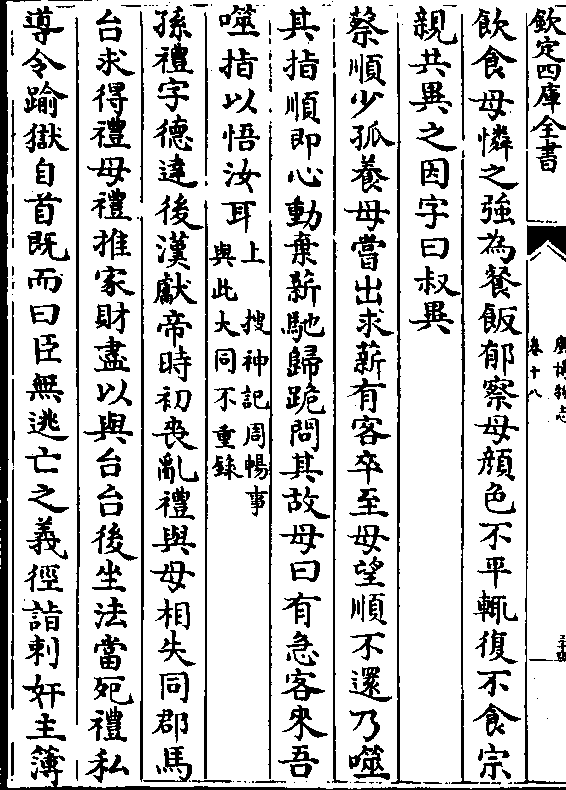 欽定四庫全書
廣博物志
卷十八
飲食母憐之強為餐飯郁察母顔色不平輒復不食宗
親共異之因字曰叔異
蔡順少孤養母嘗出求薪有客卒至母望順不還乃噬
其指順即心動棄薪馳歸跪問其故母曰有急客來吾
噬指以悟汝耳
上 搜神記周暢事
與此大同不重錄
孫禮字德達後漢獻帝時初喪亂禮與母相失同郡馬
台求得禮母禮推家財盡以與台台後坐法當死禮私
導令踰獄自首既而曰臣無逃亡之義徑詣刺奸主簿